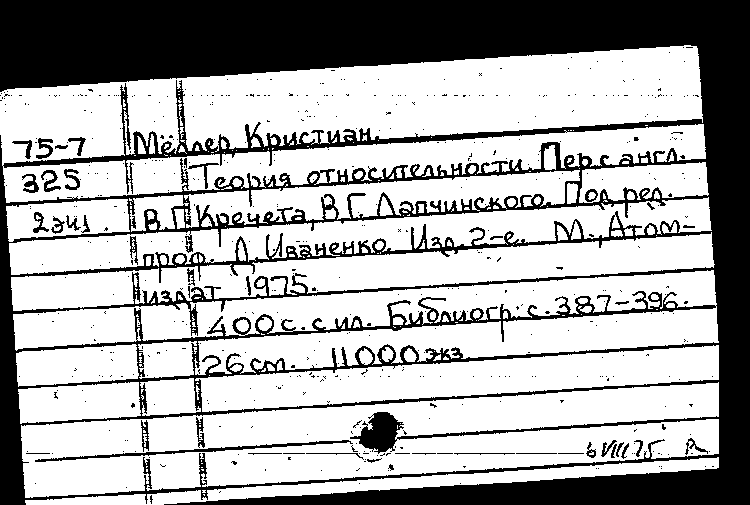 75-7 Мёллер, Кристиан.
325 Теория относительности. Пер. с англ.
2 экз. В.Г. Кречета, В.Г. Лапчинского. Под ред.
проф. Д. Иваненко. Изд. 2-е. М., Атом-
издат, 1975.
400 с. с ил. Библиогр.: с. 387-396.
26 см. 11000 экз.
6 VIII 75